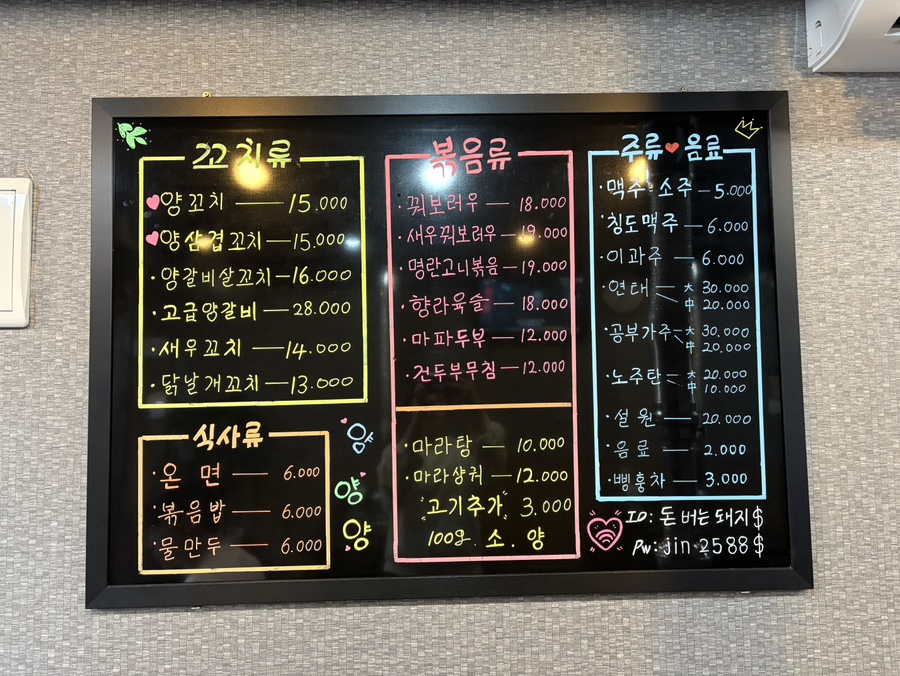 꼬치류
양꼬치 — 15.000
양삼겹꼬치 — 15.000
양갈비살꼬치 — 16.000
고급양갈비 — 28.000
새우꼬치 — 14.000
닭날개꼬치 — 13.000
식사류
온면 — 6.000
볶음밥 — 6.000
물만두 — 6.000
양
양
양
볶음류
꿔보러우 — 18.000
새우꿔보러우 — 19.000
명란고니볶음 — 19.000
향라육슬 — 18.000
마파두부 — 12.000
건두부무침 — 12.000
마라탕 — 10.000
마라샹궈 — 12.000
"고기추가" 3.000
100g 소. 양
주류 ♥ 음료
맥주! 소주 — 5.000
칭도맥주 — 6.000
이과주 — 6.000
연태 — 大 30.000
中 20.000
공부가주 — 大 30.000
中 20.000
노주탄 — 大 20.000
中 10.000
설원 — 20.000
음료 — 2.000
삥홍차 — 3.000
ID: 돈 버는 돼지$
Pw: jin 2588$